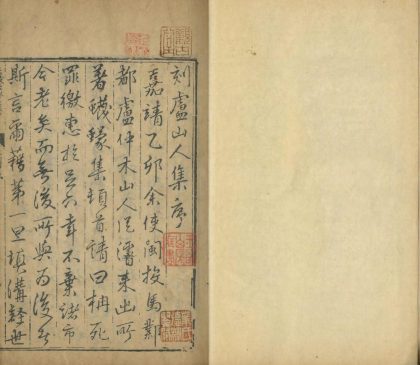 刻盧山人集序
嘉靖乙卯余使閩投馬鄴
都盧仲木山人從濬來出所
著蠛蠓集頓首請曰枏死
罪徼惠於足下幸不棄諸市
今老矣而無後所與為後者
斯言爾藉第一旦填溝壑世